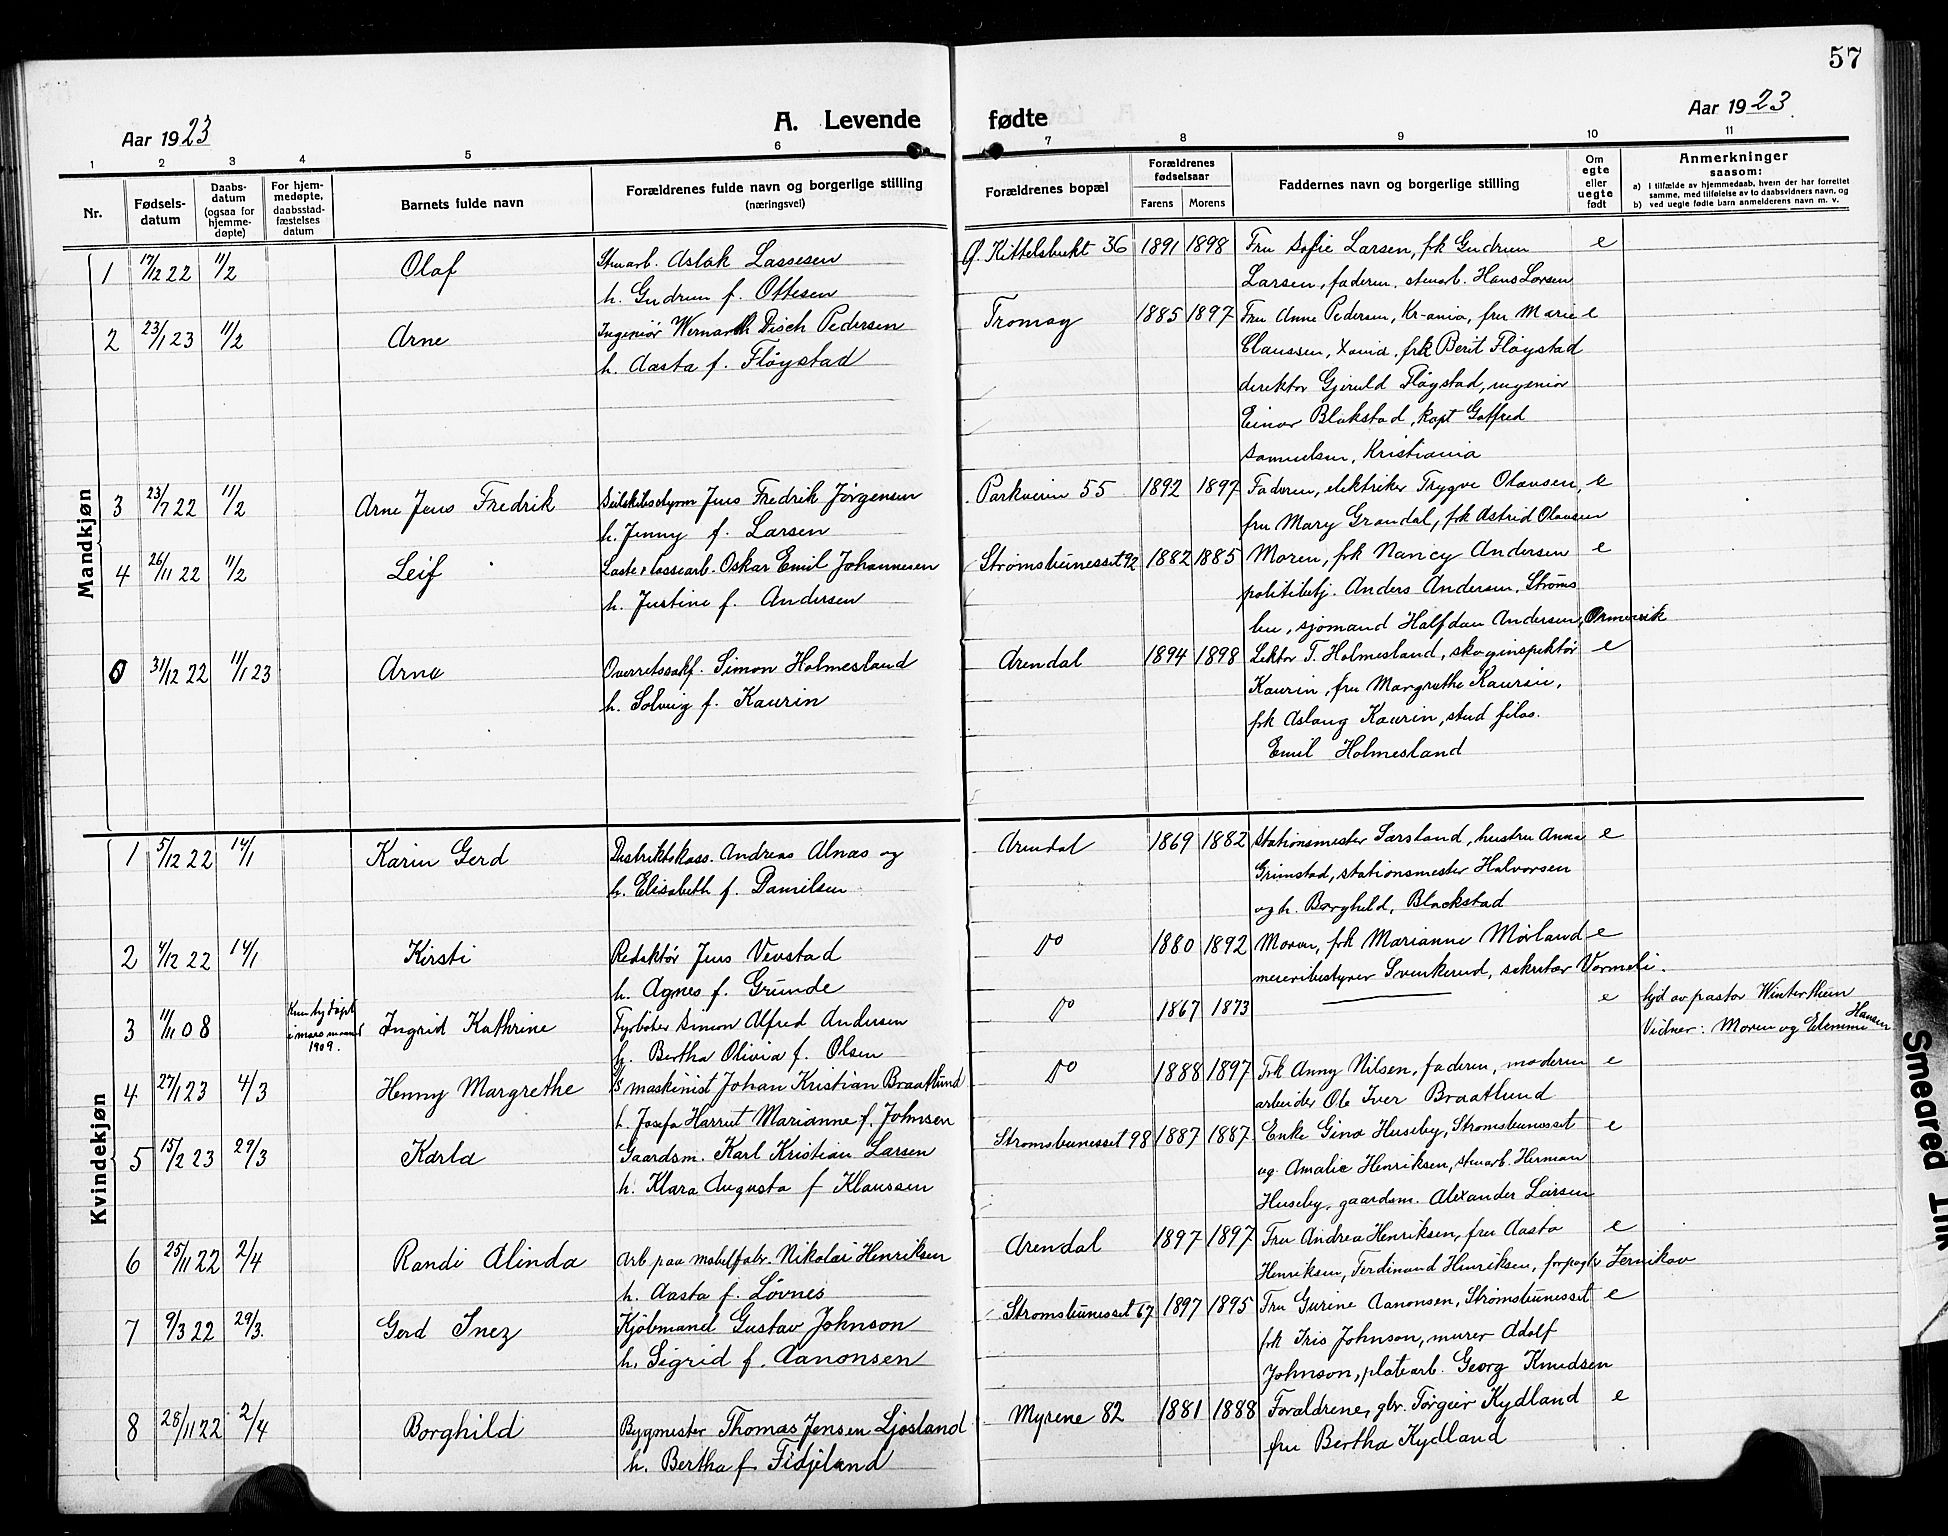 57
Aar 1923
A. Levende fødte
Aar 1923
1 2 3 4 5 6 7 8 9 10 11
Nr.
Fødsels-
datum
Daabs-
datum
(ogsaa for
hjemme-
døpte)
For hjem-
medøpte,
daabsstad-
fæstelses
datum
Barnets fulde navn
Forældrenes fulde navn og borgerlige stilling
(næringsvei)
Forældrenes bopæl
Forældrenes
fødselsaar
Farens Morens
Faddernes navn og borgerlige stilling
Om
egte
eller
uegte
født
Anmerkninger
saasom:
a) i tilfælde av hjemmedaab, hvem der har forrettet
samme, med tilføielse av to daabsvidners navn, og
b) ved uegte fødte barn anmelderens navn m. v.
Mandkjøn
1 17/12 22 11/2 Olaf Stuarb. Aslak Lassesen Ø. Kittelsbukt 36 1891 1898 Fru Sofie Larsen, frk Gudrun e
h. Gudrun f. Ottesen Larsen, faderen, stuarb. Hans Larsen
2 23/1 23 11/2 Arne Ingeniør Disch Pedersen Tromøy 1885 1897 Fru Anne Pedersen, Kr-ania, fru Marie e
h. Aasta f. Fløystad Claussen, Xania. frk Berit Fløystad
direktør Gjeruld Fløystad, ingeniør
Einar Blakstad, kapt Gotfred
Samuelsen, Kristiania
3 23/7 22 11/2 Arne Jens Fredrik Jens Fredrik Jørgensen Parkveien 55 1892 1897 Faderen, elektriker Trygve Olavsen, e
h. Jenny f. Larsen fru Mary Grandal, frk Astrid Olavsen
4 26/11 22 11/2 Leif Laste & lossearb. Oskar Emil Johannesen Strømsbunesset 92 1882 1885 Moren, frk Nancy Andersen e
h. Justine f. Andersen politibetj. Anders Andersen, Strøms
bu, sjømand Halfdan Andersen,
0 31/12 22 11/1 23 Arne Overretssakf. Simon Holmesland Arendal 1894 1898 Lektor T. Holmesland, skoginspektør e
h. Solveig f. Kaurin Kaurin, fru Margrethe Kaurin,
frk Aslaug Kaurin, stud filos.
Emil Holmesland
Kvindekjøn
1 5/12 22 14/1 Karin Gerd Distriktskass. Andreas Alnæs og Arendal 1869 1882 Stationsmester Særsland, hustru Anna e
h. Elisabeth f. Danielsen Grimstad, stationsmester Halvorsen
og h. Borghild, Blackstad
2 4/12 22 14/1 Kirsti Redaktør Jens Vevstad Do 1880 1892 Moren, frk Marianne Mørland e
h. Agnes f. Grunde meieribestyrer Svenkerud, sekretær Vormeli.
3 11/11 08 i mars maaned 1909. Ingrid Kathrine Fyrbøter Simon Alfred Andersen Do 1867 1873 e hjd av pastor Winterthun
h. Bertha Olivia f. Olsen Vidner: Moren og Hansen
4 27/1 23 4/3 Henny Margrethe D/S maskinist Johan Kristian Braatlund Do 1888 1897 Frk Anny Nilsen, faderen, moderen e
h. Josefa Harriet Marianne f. Johnsen arbeider Ole Iver Braatlund
5 15/2 23 29/3 Karla Gaardsm. Karl Kristian Larsen Strømsbunesset 98 1887 1887 Enke Gina Huseby, Strømsbunesset e
h. Klara Augusta f Klaussen og Amalie Henriksen, stuarb. Herman
Huseby, gaardsm. Alexander Larsen
6 25/11 22 2/4 Randi Alinda Arb paa møbelfabr. Nikolai Henriksen Arendal 1897 1897 Fru Andrea Henriksen, fru Aasta e
h. Aasta f. Løvnes Henriksen, Ferdinand Henriksen,
7 9/3 22 29/3. Gerd Inez Kjøbmand Gustav Johnson Strømsbunesset 67 1897 1895 Fru Gurine Aanonsen, Strømsbunesset e
h. Sigrid f. Aanonsen frk Iris Johnson, murer Adolf
Johnson, platearb. Georg Knudsen
8 28/11 22 2/4 Borghild Bygmester Thomas Jensen Ljosland Myrene 82 1881 1888 Forældrene, gbr. Torgeir Kydland e
h. Bertha f Fidjeland fru Bertha Kydland
Smeared